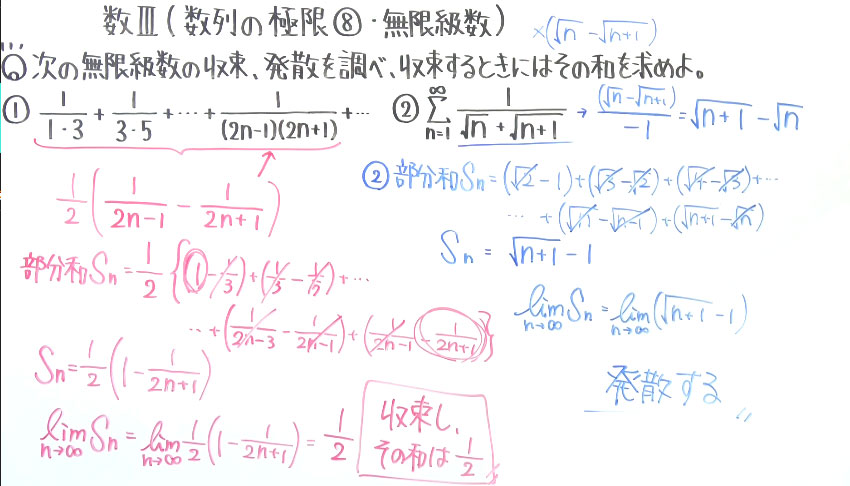 数Ⅲ(数列の極限⑧・無限級数)
×(√n - √n+1)
Q 次の無限級数の収束、発散を調べ、収束するときにはその和を求めよ。
① 1/(1・3) + 1/(3・5) + … + 1/((2n-1)(2n+1)) + …
1/2 (1/(2n-1) - 1/(2n+1))
部分和Sn = 1/2 {(1 - 1/3) + (1/3 - 1/5) + …
… + (1/(2n-3) - 1/(2n-1)) + (1/(2n-1) - 1/(2n+1))}
Sn = 1/2 (1 - 1/(2n+1))
lim n→∞ Sn = lim n→∞ 1/2 (1 - 1/(2n+1)) = 1/2
収束し、
その和は 1/2
② ∞ Σ n=1 1/(√n + √n+1) → (√n - √n+1)/-1 = √n+1 - √n
② 部分和Sn = (√2 - 1) + (√3 - √2) + (√4 - √3) + …
… + (√n - √n-1) + (√n+1 - √n)
Sn = √n+1 - 1
lim n→∞ Sn = lim n→∞ (√n+1 - 1)
発散する〃